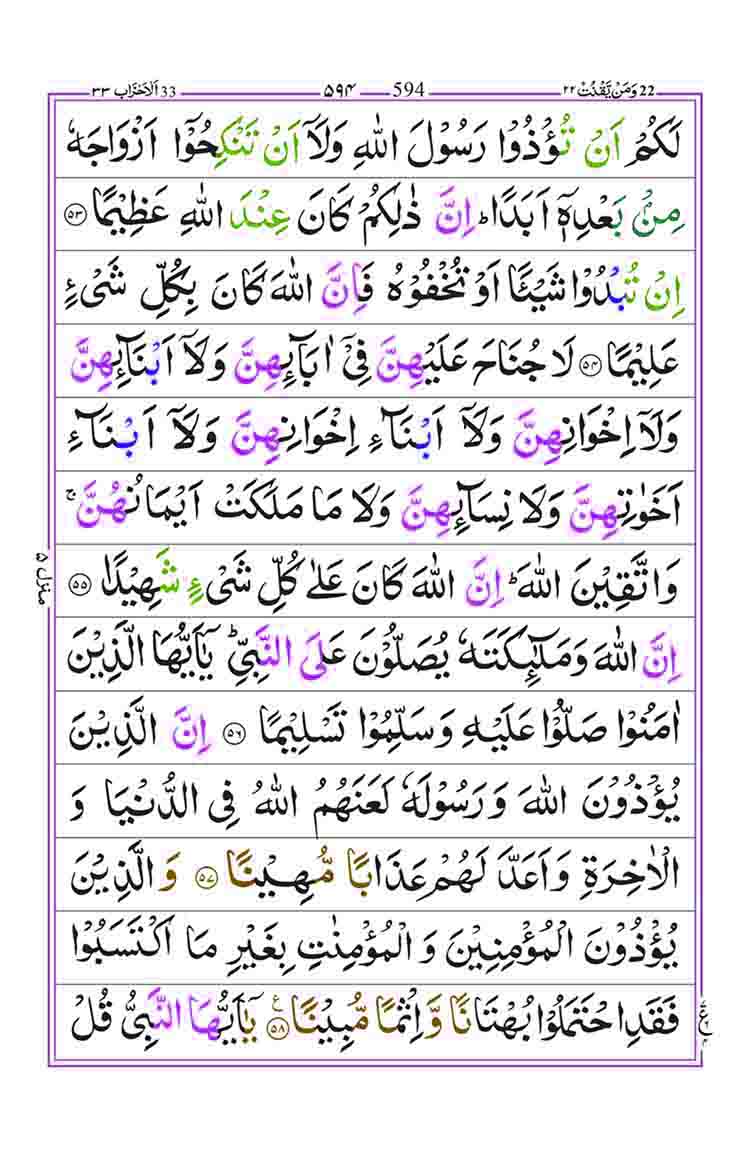 22 وَمَنْ يَّقْنُتْ ۲۲ 594 ۵۹۴ 33 اَلْاَحْزَاب ۳۳
لَكُمْ اَنْ تُؤْذُوْا رَسُوْلَ اللّٰهِ وَلَاۤ اَنْ تَنْكِحُوْۤا اَزْوَاجَهٗ
مِنْۢ بَعْدِهٖۤ اَبَدًا ؕ اِنَّ ذٰلِكُمْ كَانَ عِنْدَ اللّٰهِ عَظِيْمًا ۝۵۳
اِنْ تُبْدُوْا شَيْـًٔا اَوْ تُخْفُوْهُ فَاِنَّ اللّٰهَ كَانَ بِكُلِّ شَیْءٍ
عَلِيْمًا ۝۵۴ لَا جُنَاحَ عَلَيْهِنَّ فِیْۤ اٰبَآىِٕهِنَّ وَلَاۤ اَبْنَآىِٕهِنَّ
وَلَاۤ اِخْوَانِهِنَّ وَلَاۤ اَبْنَآءِ اِخْوَانِهِنَّ وَلَاۤ اَبْنَآءِ
اَخَوٰتِهِنَّ وَلَا نِسَآىِٕهِنَّ وَلَا مَا مَلَكَتْ اَيْمَانُهُنَّ ۚ
وَاتَّقِيْنَ اللّٰهَ ؕ اِنَّ اللّٰهَ كَانَ عَلٰى كُلِّ شَیْءٍ شَهِيْدًا ۝۵۵
اِنَّ اللّٰهَ وَمَلٰٓىِٕكَتَهٗ يُصَلُّوْنَ عَلَى النَّبِیِّ ؕ يٰۤاَيُّهَا الَّذِيْنَ
اٰمَنُوْا صَلُّوْا عَلَيْهِ وَسَلِّمُوْا تَسْلِيْمًا ۝۵۶ اِنَّ الَّذِيْنَ
يُؤْذُوْنَ اللّٰهَ وَرَسُوْلَهٗ لَعَنَهُمُ اللّٰهُ فِی الدُّنْيَا وَ
الْاٰخِرَةِ وَاَعَدَّ لَهُمْ عَذَابًا مُّهِيْنًا ۝۵۷ وَالَّذِيْنَ
يُؤْذُوْنَ الْمُؤْمِنِيْنَ وَالْمُؤْمِنٰتِ بِغَيْرِ مَا اكْتَسَبُوْا
فَقَدِ احْتَمَلُوْا بُهْتَانًا وَّاِثْمًا مُّبِيْنًا ۝۵۸ يٰۤاَيُّهَا النَّبِیُّ قُلْ
منزل ۵